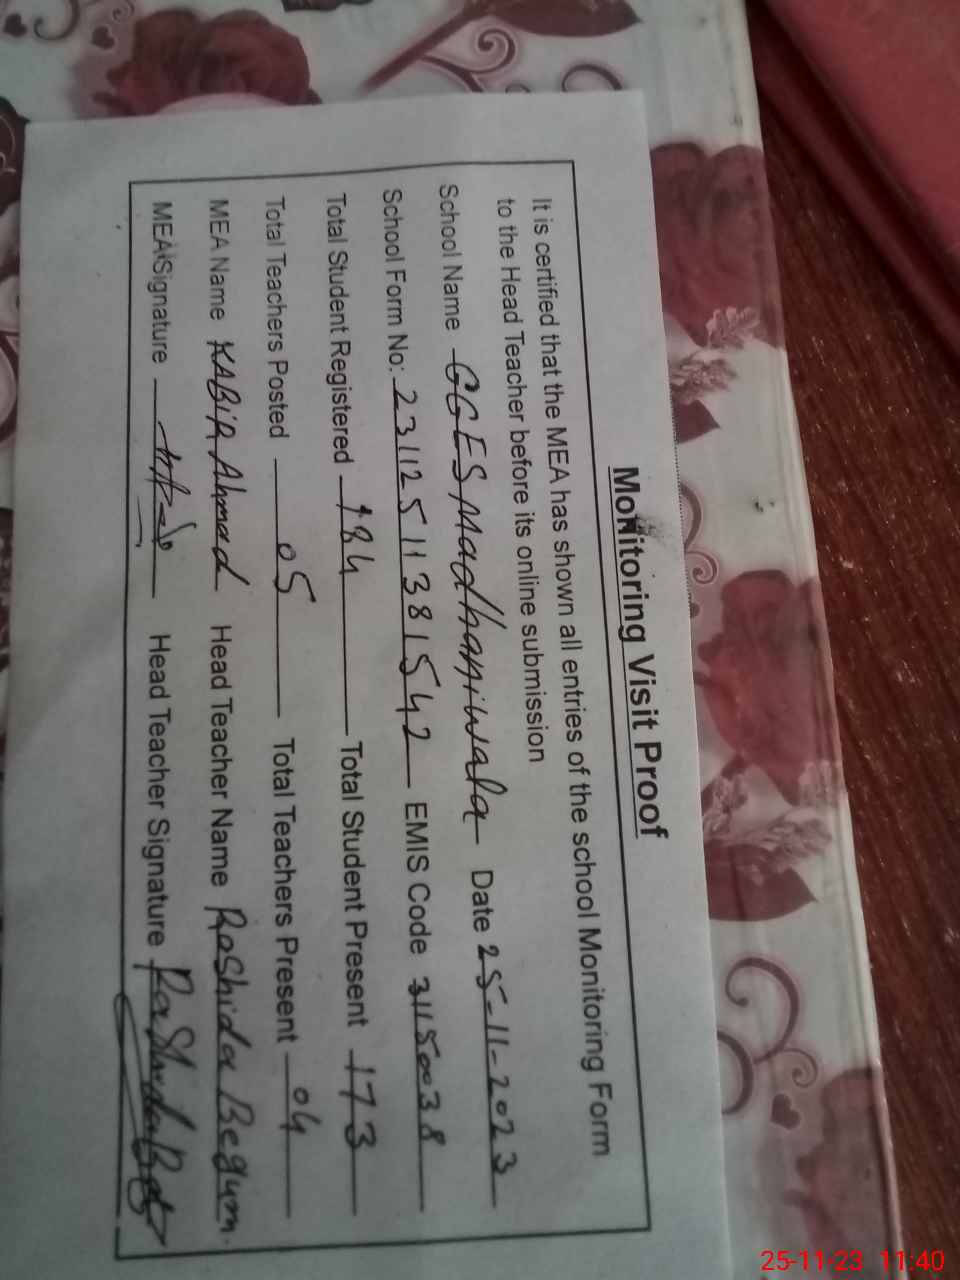 Monitoring Visit Proof
It is certified that the MEA has shown all entries of the school Monitoring Form
to the Head Teacher before its online submission
School Name GGES Madhaniwala Date 25-11-2023
School Form No: 23112511381542 EMIS Code 31150038
Total Student Registered 184 Total Student Present 173
Total Teachers Posted 05 Total Teachers Present 04
MEA Name KABIR Ahmad Head Teacher Name Rashida Begum.
MEA Signature Head Teacher Signature Rashida
25-11-23 11:40